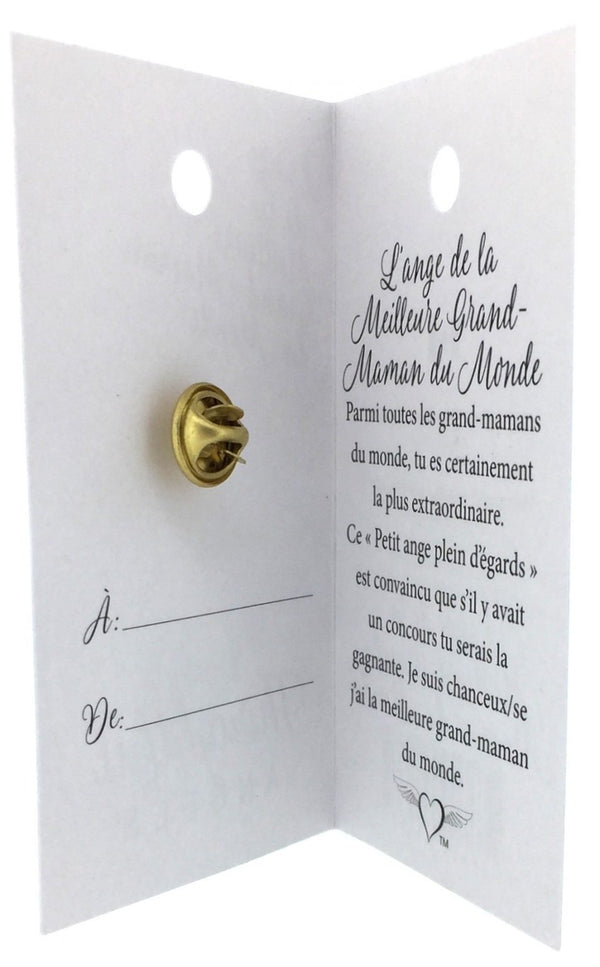 À:
De:
L'ange de la
Meilleure Grand-
Maman du Monde
Parmi toutes les grand-mamans
du monde, tu es certainement
la plus extraordinaire.
Ce « Petit ange plein d'égards »
est convaincu que s'il y avait
un concours tu serais la
gagnante. Je suis chanceux/se
j'ai la meilleure grand-maman
du monde.
TM